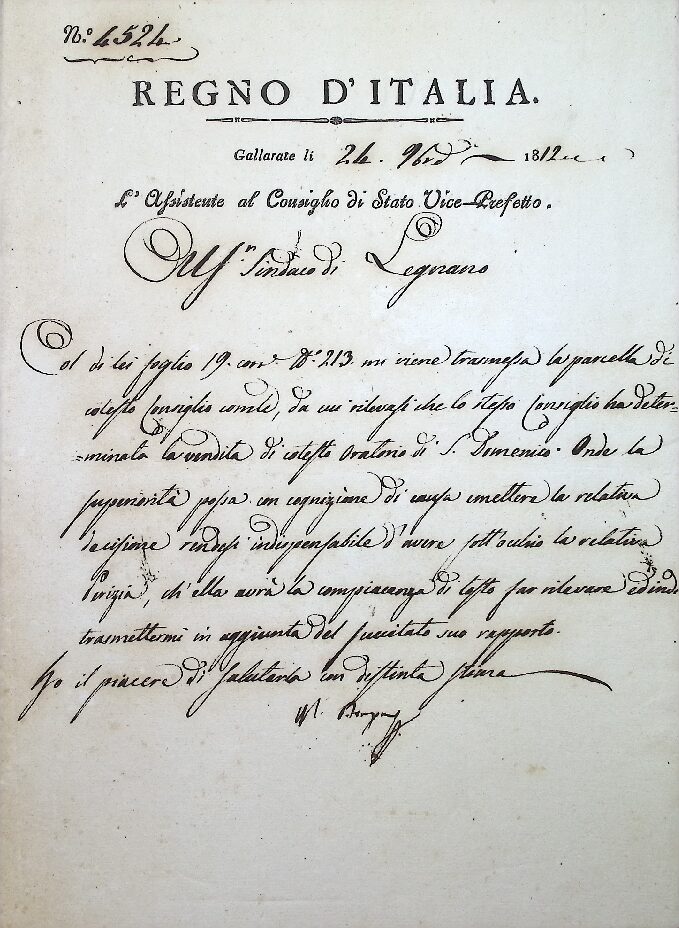 N.º 4524
REGNO D'ITALIA.
Gallarate li 24. 9brē 1812
L'Assistente al Consiglio di Stato Vice-Prefetto.
Al Sig.r Sindaco di Legnano
Col di lei foglio 19. corr.e N.º 213. mi viene trasmessa la parcella di
cotesto Consiglio com.le, da cui rilevasi che lo stesso Consiglio ha deter=
=minata la vendita di cotesto Oratorio di S. Domenico. Onde la
superiorità possa con cognizione di causa emettere la relativa
decisione rendesi indispensabile d'avere sott'occhio la relativa
Perizia, ch'ella avrà la compiacenza di tosto far rilevare ed indi
trasmettermi in aggiunta del succitato suo rapporto.
Ho il piacere di salutarla con distinta stima